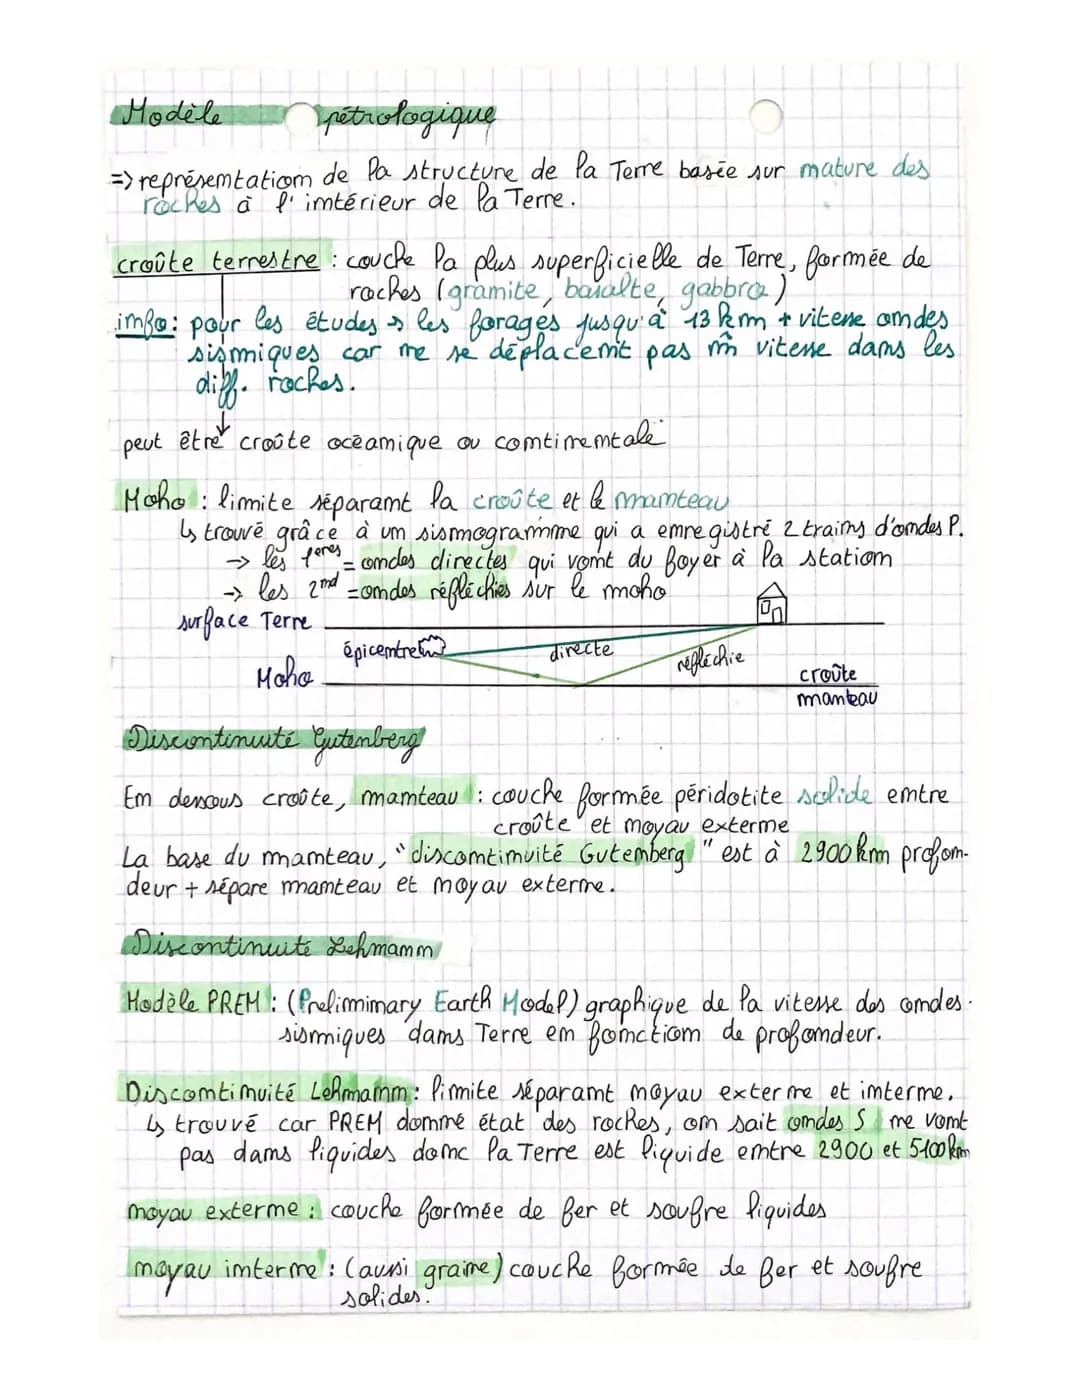 Modèle pétrologique
=> représentation de la structure de la Terre basée sur nature des
roches à l'intérieur de la Terre.
croûte terrestre : couche la plus superficielle de Terre, formée de
roches (granite, basalte, gabbro)
info : pour les études → les forages jusqu'à 13 km + vitesse ondes
sismiques car ne se déplacent pas m̂ vitesse dans les
diff. roches.
peut être croûte océanique ou continentale
Moho : limite séparant la croûte et le manteau
↳ trouvé grâce à un sismogramme qui a enregistré 2 trains d'ondes P.
→ les 1eres = ondes directes qui vont du foyer à la station
→ les 2nd = ondes réfléchies sur le moho
surface Terre
épicentre directe réfléchie
Moho croûte
manteau
Discontinuité Gutenberg
En dessous croûte, manteau : couche formée péridotite solide entre
croûte et noyau externe
La base du manteau, "discontinuité Gutemberg" est à 2900 km profon-
deur + sépare manteau et noyau externe.
Discontinuité Lehmann
Modèle PREM : (Prelimimary Earth Model) graphique de la vitesse des ondes
sismiques dans Terre en fonction de profondeur.
Discontinuité Lehmann : limite séparant noyau externe et interne.
↳ trouvé car PREM donne état des roches, on sait ondes S ne vont
pas dans liquides donc la Terre est liquide entre 2900 et 5100 km
noyau externe : couche formée de fer et soufre liquides
noyau interne : (aussi graine) couche formée de fer et soufre
solides.